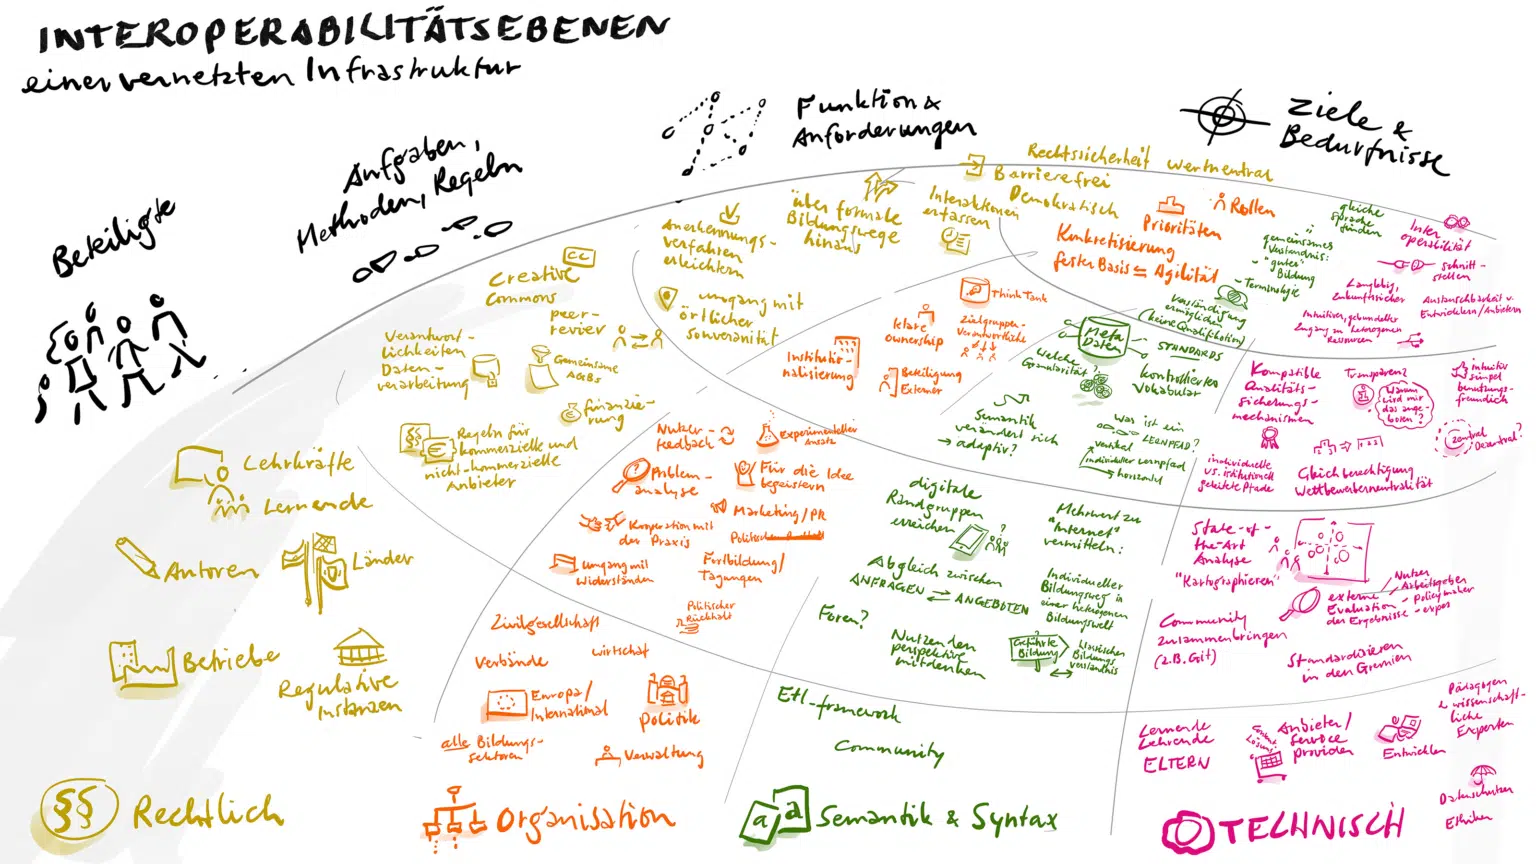 INTEROPERABILITÄTSEBENEN
einer vernetzten Infrastruktur
Beteiligte
Aufgaben,
Methoden, Regeln
Funktion &
Anforderungen
Ziele &
Bedürfnisse
Rechtssicherheit wertneutral
Barrierefrei
Demokratisch
Interaktionen
erfassen
über formale
Bildungswege
hinaus
Anerkennungs-
verfahren
erleichtern
umgang mit
örtlicher
souveranität
CC
Creative
Commons
peer-
review
Verantwort-
lichkeiten
Daten-
verarbeitung
Gemeinsame
AGBs
finanzie-
rung
§§
€
Regeln für
kommerzielle und
nicht-kommerzielle
Anbieter
Lehrkräfte
Lernende
Autoren
Länder
Betriebe
Regulative
instanzen
§§ Rechtlich
Rollen
Prioritäten
Konkretisierung
feste Basis Agilität
Think Tank
klare
ownership
Zielgruppen-
Verantwortliche
Institutio-
nalisierung
Beteiligung
Externer
Nutzer-
feedback
Experimenteller
Ansatz
Problem-
analyse
Für die Idee
begeistern
Kooperation mit
der Praxis
Marketing/PR
Umgang mit
Widerständen
Fortbildung/
Tagungen
Politischer
Rückhalt
Zivilgesellschaft
Verbände
wirtschaft
Europa/
International
Politik
alle Bildungs-
sektoren
Verwaltung
Organisation
gleiche
Sprache
finden
gemeinsames
Verständnis:
"gute"
Bildung
- Terminologie
Verständigung
ermöglichen
(keine Qualifikation)
Meta
Daten
STANDARDS
Welche
Granularität?
kontrolliertes
Vokabular
Semantik
verändert sich
→ adaptiv?
Was ist ein
LERNPFAD?
vertikal
individueller Lernpfad
horizontal
digitale
Randgruppen
erreichen
Mehrwert zu
"Internet"
vermitteln:
Abgleich zwischen
ANFRAGEN ⇄ ANGEBOTEN
Individueller
Bildungsweg in
einer heterogenen
Bildungswelt
Foren?
Nutzenden
perspektive
mitdenken
Geführte
Bildung
klassisches
Bildungs-
verständnis
Etl-framework
Community
a a Semantik & Syntax
Inter
operabilität
schnitt-
stellen
Langlebig,
Zukunftssicher
Austauschbarkeit v.
Entwicklern/Anbietern
Intuitiver, gebündelter
Zugang zu heterogenen
Ressourcen
Kompatible
Qualitäts-
sicherungs-
mechanismen
Transparenz
Warum
wird mir
das ange-
boten?
intuitiv
simpel
benutzungs-
freundlich
zentral
Dezentral?
individuelle
vs. institutionell
geleitete Pfade
Gleichberechtigung
Wettbewerberneutralität
State-of-
the-Art
Analyse
"Kartographieren"
externe
Evaluation
der Ergebnisse
Nutzer
Arbeitsgeber
- Policymaker
Community
zusammenbringen
(z.B. Git)
Standardisieren
in den Gremien
Lernende
Lehrende
ELTERN
Content
Lösung
Anbieter/
Service
provider
Entwickler
Pädagogen
& wissenschaft-
liche
Experten
Datenschützer
Ethiker
TECHNISCH